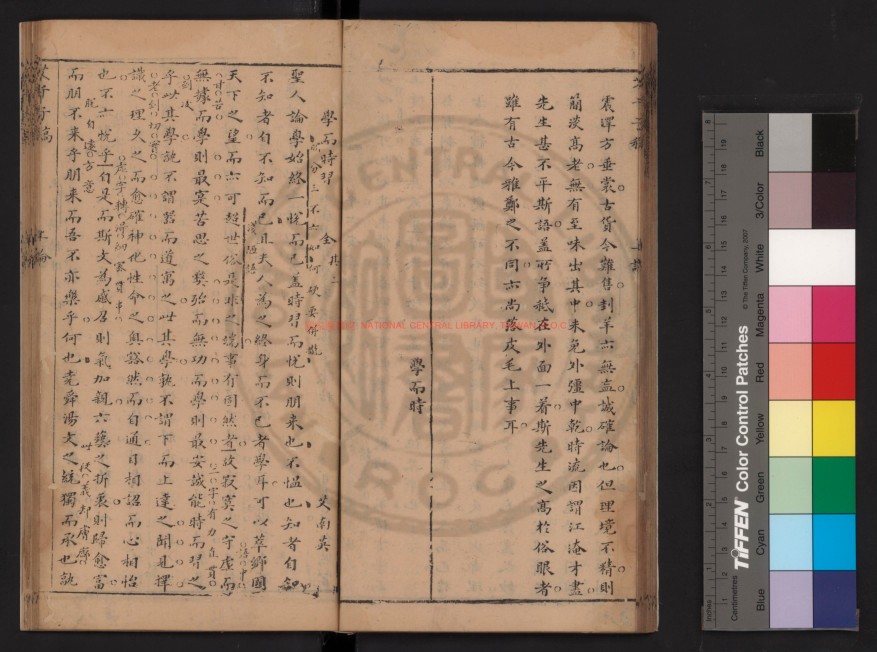 震澤方垂裳古貨今難售刲羊亦無衁誠確論也但理境不精則
簡淡高老無有至味出其中未免外彊中乾時流因謂江淹才盡
先生甚不平斯語蓋所爭秪在外面一著斯先生之高於俗眼者
雖有古今雅鄭之不同亦尚落皮毛上事耳
學而時
學而時習 全其一 艾南英
聖人論學始終一悅而已蓋時習而悅則朋來也不慍也知者自知
不知者自不知而已且夫人為之終身而不已者學耳可以萃鄉國
天下之望而亦可超世俗是非之端事有固然者故寂寞之守虛而
無據而學則最寞苦思之契殆而無功而學則最安誠能時而習之
乎以其學說不謂器而道寓之以其學雖不謂下而上達之聞見擇
識之理久之而愈確神化性命之奧豁然而自通目相認而心相怡
也不亦悅乎自是而斯文為感召則氣加親六藝之折衷則歸愈富
而朋不來乎朋來而吾不亦樂乎何也堯舜湯文之統獨而承也孰
NATIONAL CENTRAL LIBRARY, TAIWAN, R.O.C.
CENTRAL
ROC
TIFFEN Color Control Patches
© The Tiffen Company, 2007
Inches
Centimetres
Blue
Cyan
Green
Yellow
Red
Magenta
White
3/Color
Black